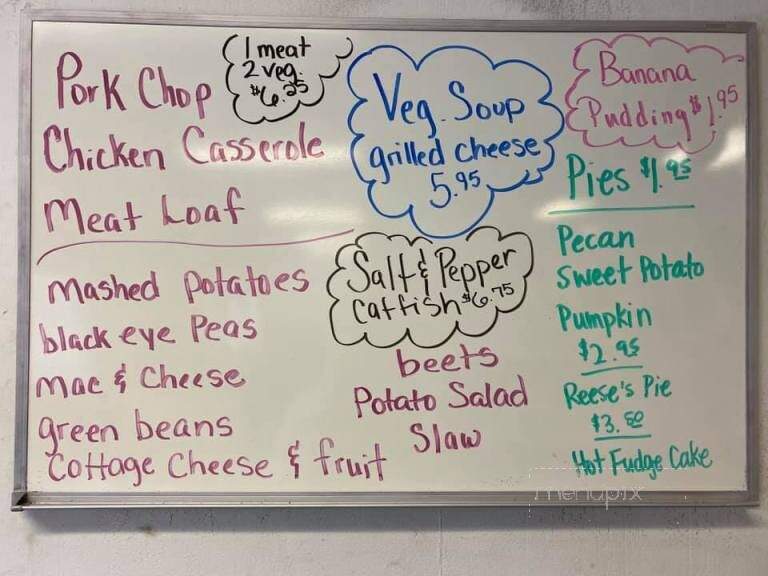 Pork Chop
Chicken Casserole
Meat Loaf
1 meat
2 veg.
$6.25
mashed potatoes
black eye Peas
mac & Cheese
green beans
Cottage Cheese & fruit
Veg. Soup
grilled cheese
5.95
Salt & Pepper
catfish $6.75
beets
Potato Salad
Slaw
Banana
Pudding $1.95
Pies $1.95
Pecan
Sweet Potato
Pumpkin
$2.95
Reese's Pie
$3.50
Hot Fudge Cake
menupix